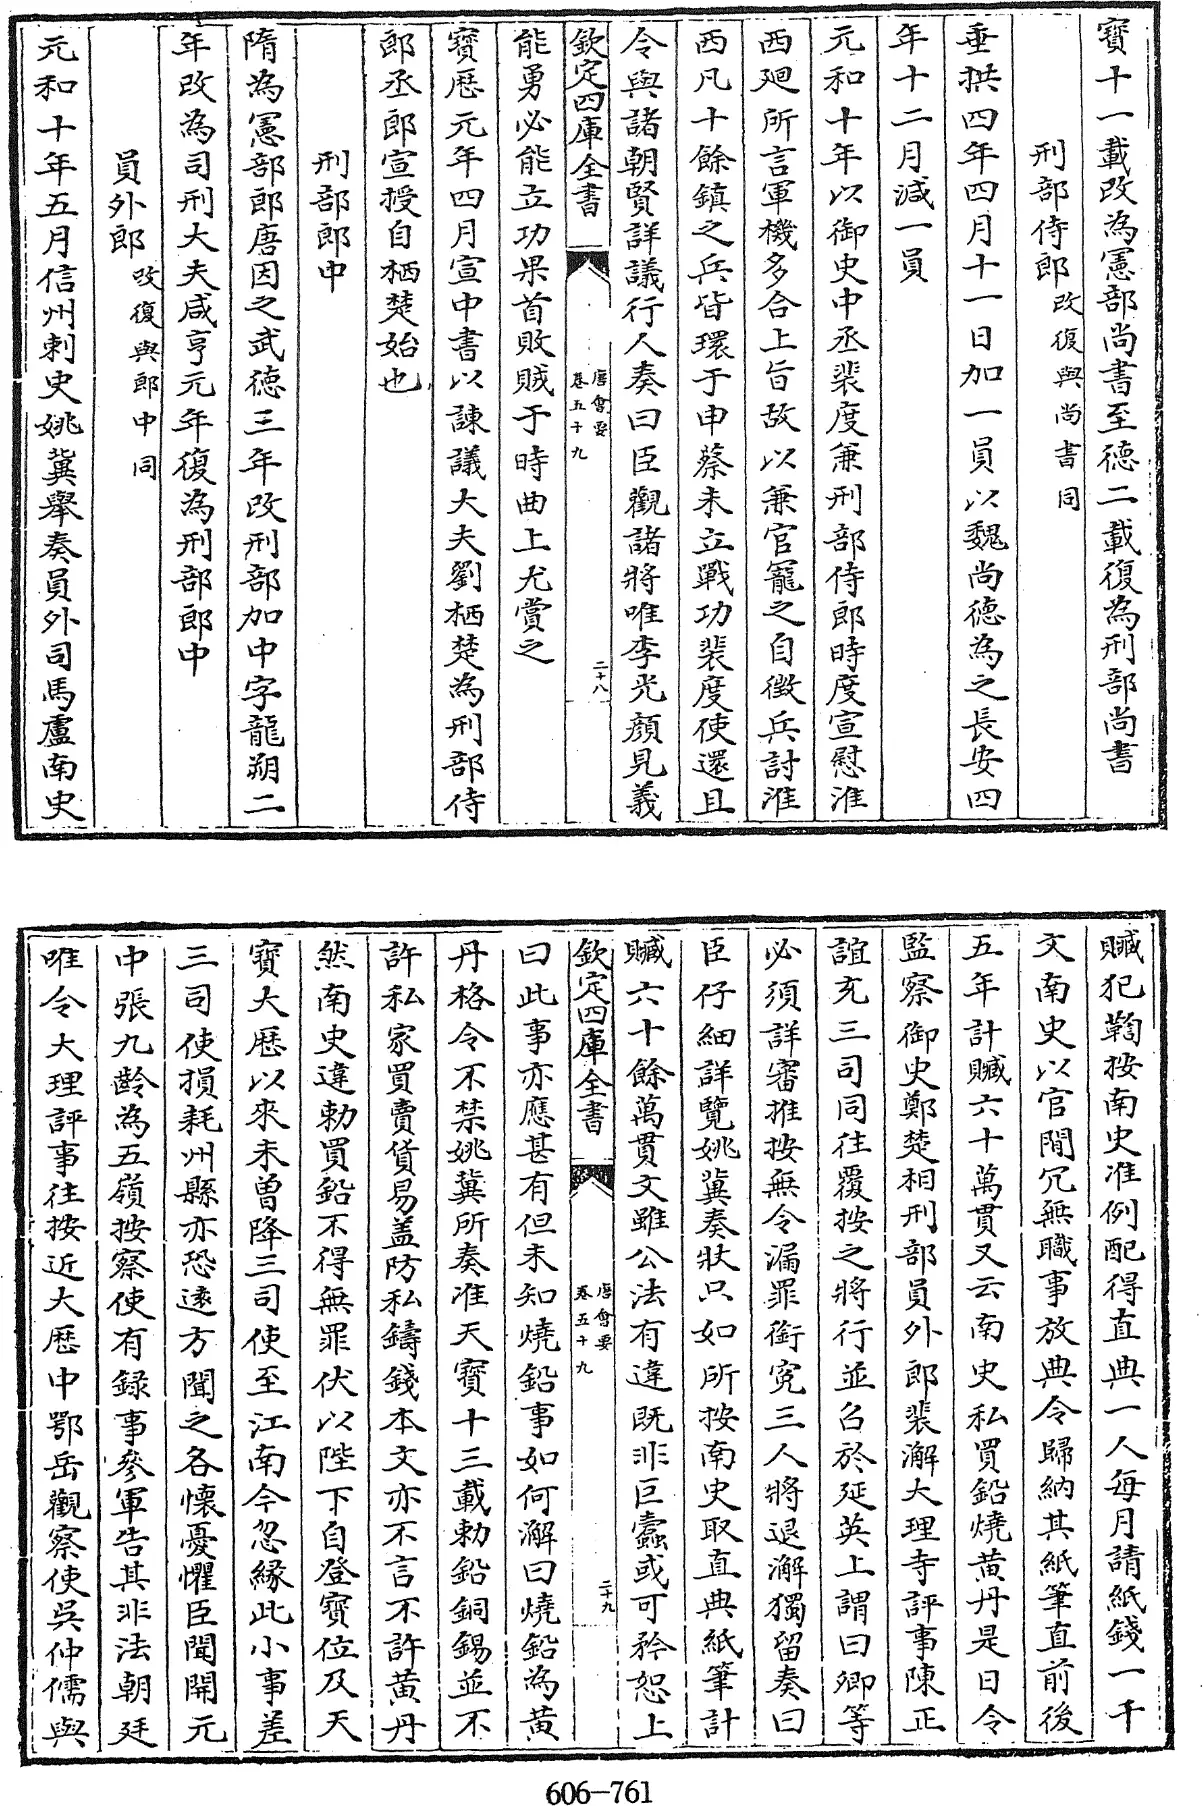 寶十一載改為憲部尚書至德二載復為刑部尚書
刑部侍郎改復與尚書同
垂拱四年四月十一日加一員以魏尚德為之長安四
年十二月減一員
元和十年以御史中丞裴度兼刑部侍郎時度宣慰淮
西廻所言軍機多合上旨故以兼官寵之自徴兵討淮
西凡十餘鎮之兵皆環于申蔡未立戰功裴度使還且
令與諸朝賢詳議行人奏曰臣觀諸將唯李光顔見義
欽定四庫全書
唐會要
卷五十九
二十八
能勇必能立功果首敗賊于時曲上尤賞之
寶厯元年四月宣中書以諫議大夫劉栖楚為刑部侍
郎丞郎宣授自栖楚始也
刑部郎中
隋為憲部郎唐因之武德三年改刑部加中字龍朔二
年改為司刑大夫咸亨元年復為刑部郎中
員外郎改復與郎中同
元和十年五月信州刺史姚冀舉奏員外司馬盧南史
贓犯鞫按南史准例配得直典一人每月請紙錢一千
文南史以官閒冗無職事放典令歸納其紙筆直前後
五年計贓六十萬貫又云南史私買鉛燒黄丹是日令
監察御史鄭楚相刑部員外郎裴澥大理寺評事陳正
誼充三司同往覆按之將行並召於延英上謂曰卿等
必須詳審推按無令漏罪銜寃三人將退澥獨留奏曰
臣仔細詳覽姚冀奏狀只如所按南史取直典紙筆計
贓六十餘萬貫文雖公法有違既非巨蠹或可矜恕上
欽定四庫全書
唐會要
卷五十九
二十九
曰此事亦應甚有但未知燒鉛事如何澥曰燒鉛為黄
丹格令不禁姚冀所奏准天寶十三載勅鉛銅錫並不
許私家買賣貨易盖防私鑄錢本文亦不言不許黄丹
然南史違勅買鉛不得無罪伏以陛下自登寳位及天
寶大厯以來未曽降三司使至江南今忽縁此小事差
三司使損耗州縣亦恐逺方聞之各懷憂懼臣聞開元
中張九齡為五嶺按察使有録事參軍告其非法朝廷
唯令大理評事往按近大厯中鄂岳觀察使吳仲儒與
606-761